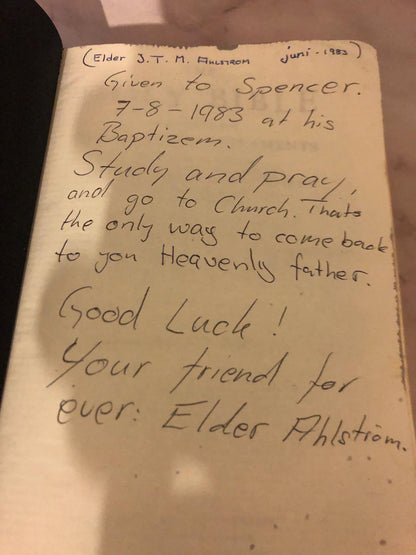 (Elder J.T.M. AHLSTROM juni - 1983)
Given to Spencer.
7-8-1983 at his
Baptizem.
Study and pray,
and go to Church. Thats
the only way to come back
to you Heavenly father.
Good Luck!
Your friend for
ever: Elder Ahlström.